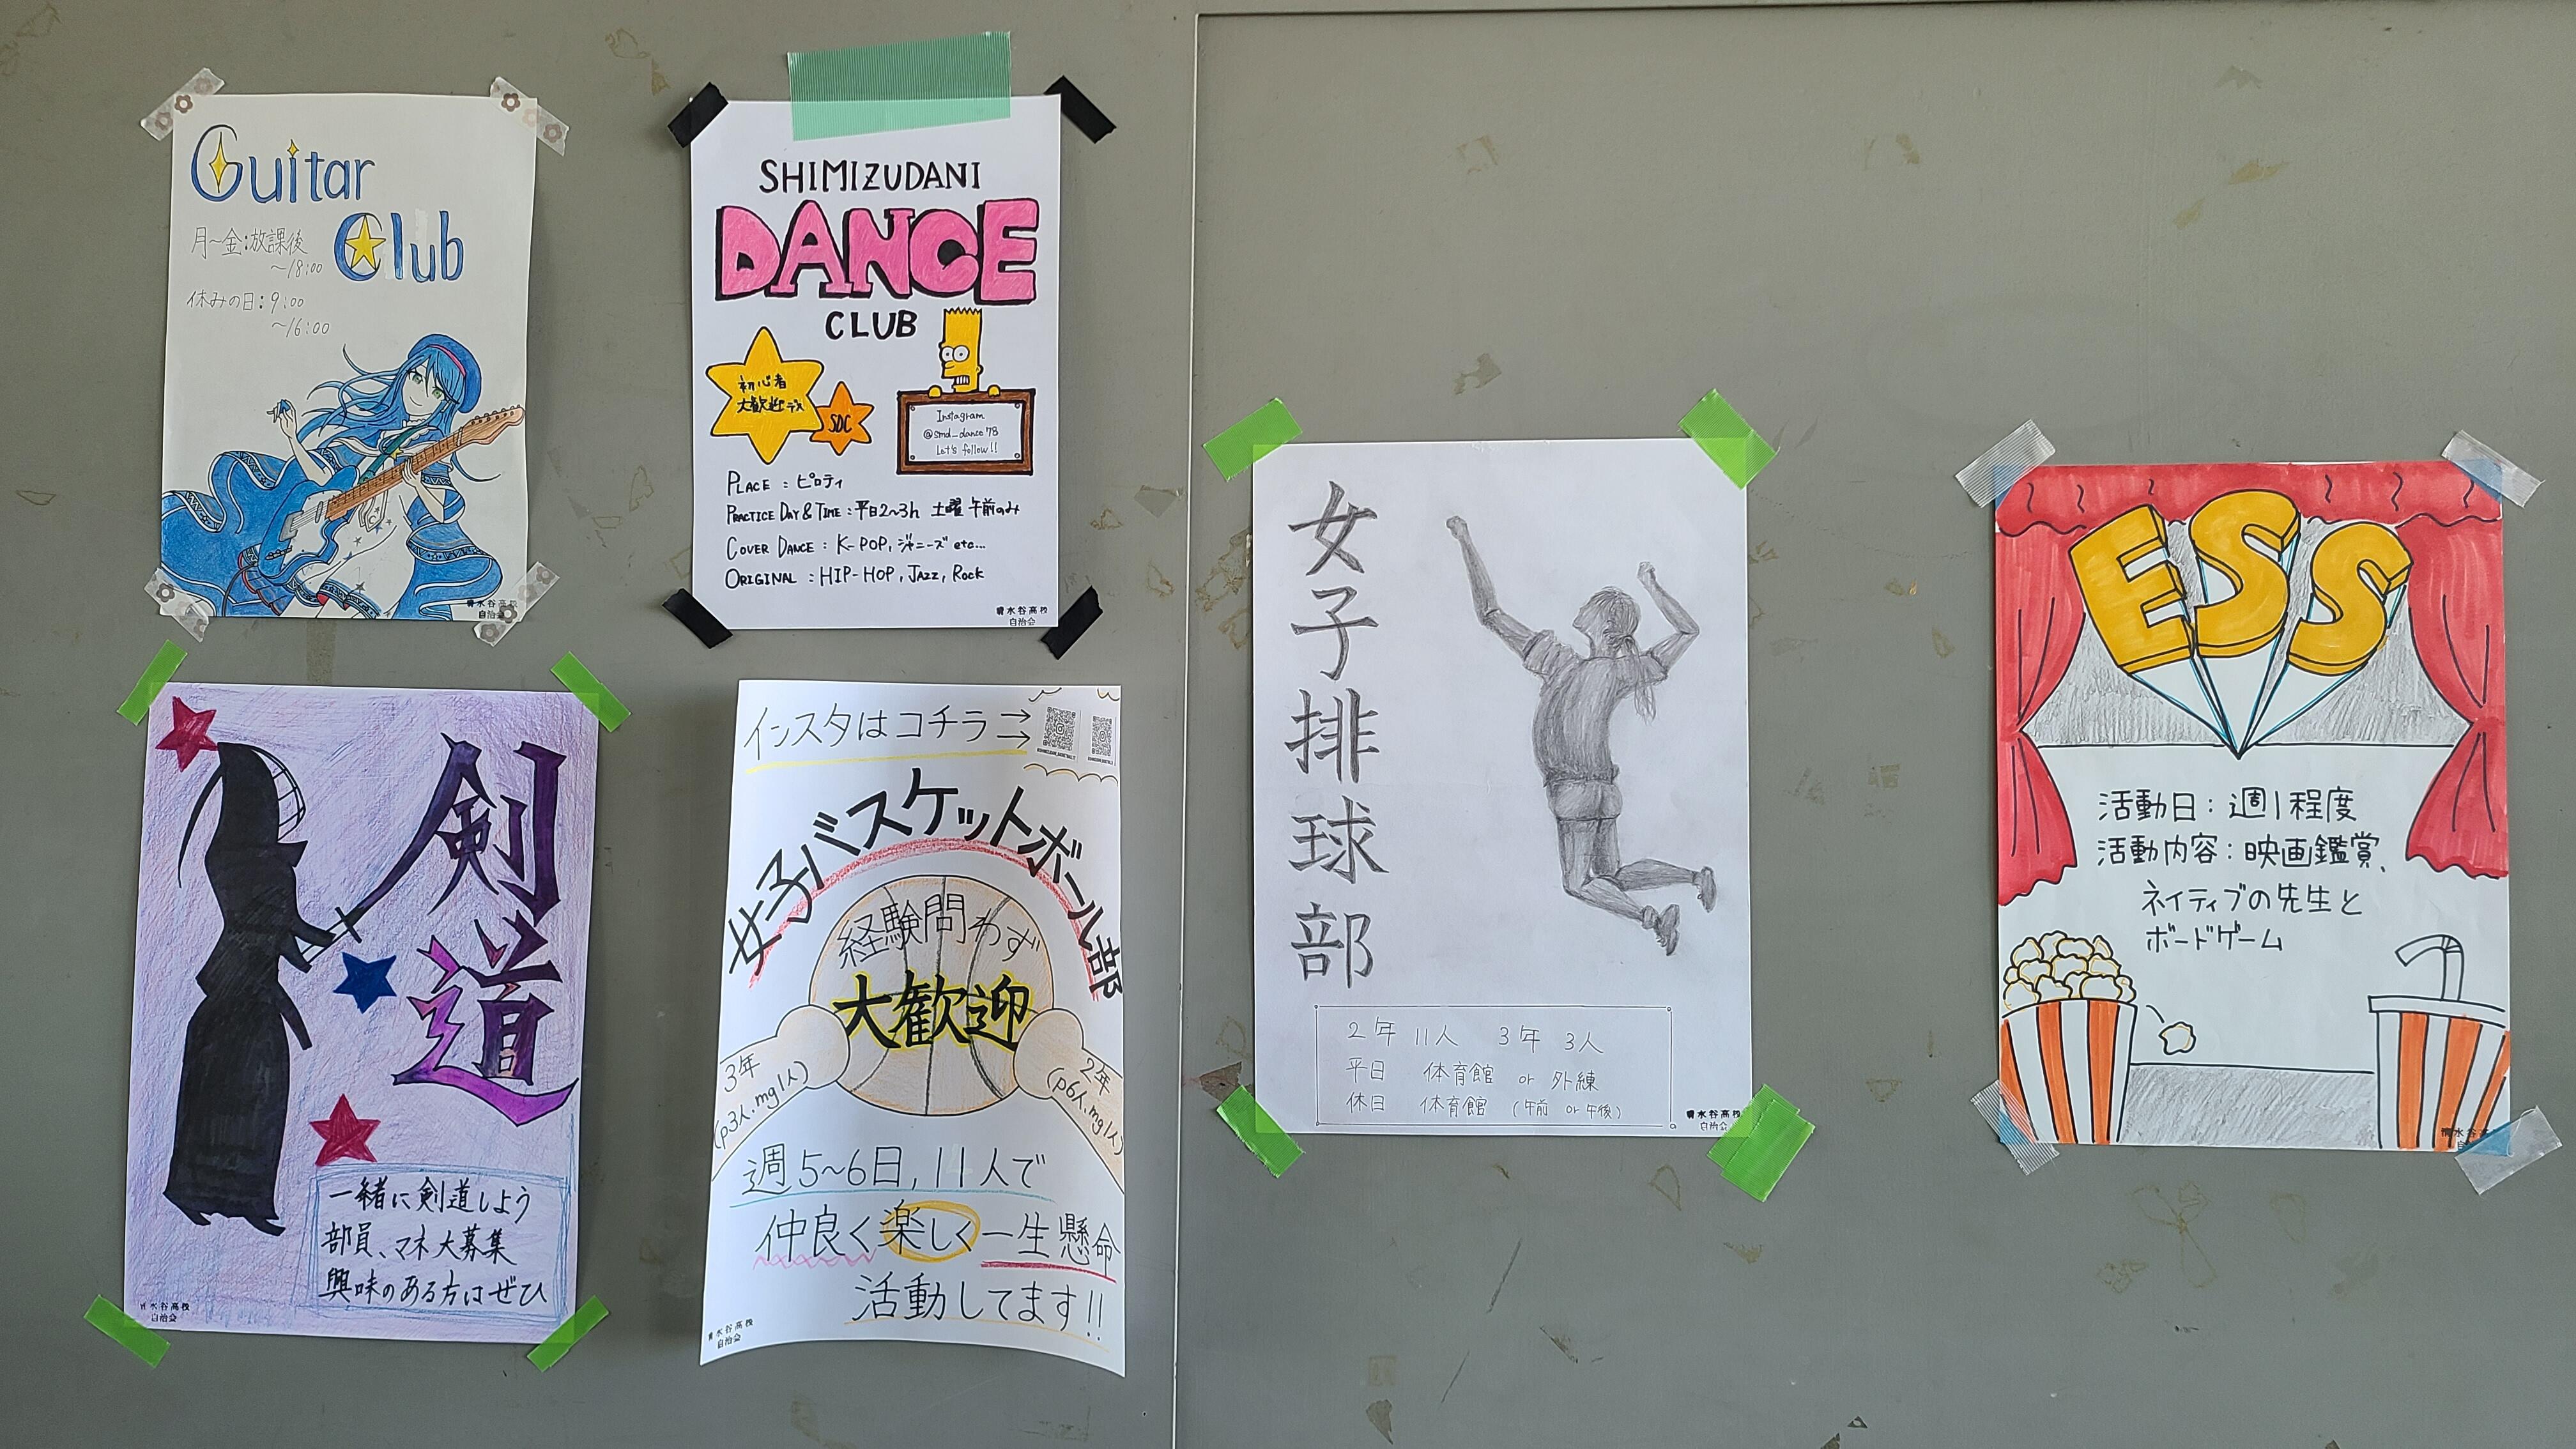 Guitar
Club
月～金:放課後
～18:00
休みの日:9:00
～16:00
清水谷高校
自治会
SHIMIZUDANI
DANCE
CLUB
初心者
大歓迎デス
SDC
Instagram
@smd_dance78
Let's follow!!
PLACE : ピロティ
PRACTICE DAY & TIME : 平日2～3h 土曜 午前のみ
COVER DANCE : K-POP, ジャニーズ etc...
ORIGINAL : HIP-HOP, JAZZ, ROCK
清水谷高校
自治会
剣道
一緒に剣道しよう
部員、マネ大募集
興味のある方はぜひ
清水谷高校
自治会
インスタはコチラ→
→
女子バスケットボール部
経験問わず
大歓迎
3年
(p3人.mg1人)
2年
(p6人.mg1人)
週5～6日,11人で
仲良く楽しく一生懸命
活動してます!!
清水谷高校
自治会
女子排球部
2年 11人 3年 3人
平日 体育館 or 外練
休日 体育館 (午前 or 午後)
清水谷高校
自治会
ESS
活動日:週1程度
活動内容:映画鑑賞、
ネイティブの先生と
ボードゲーム
清水谷高